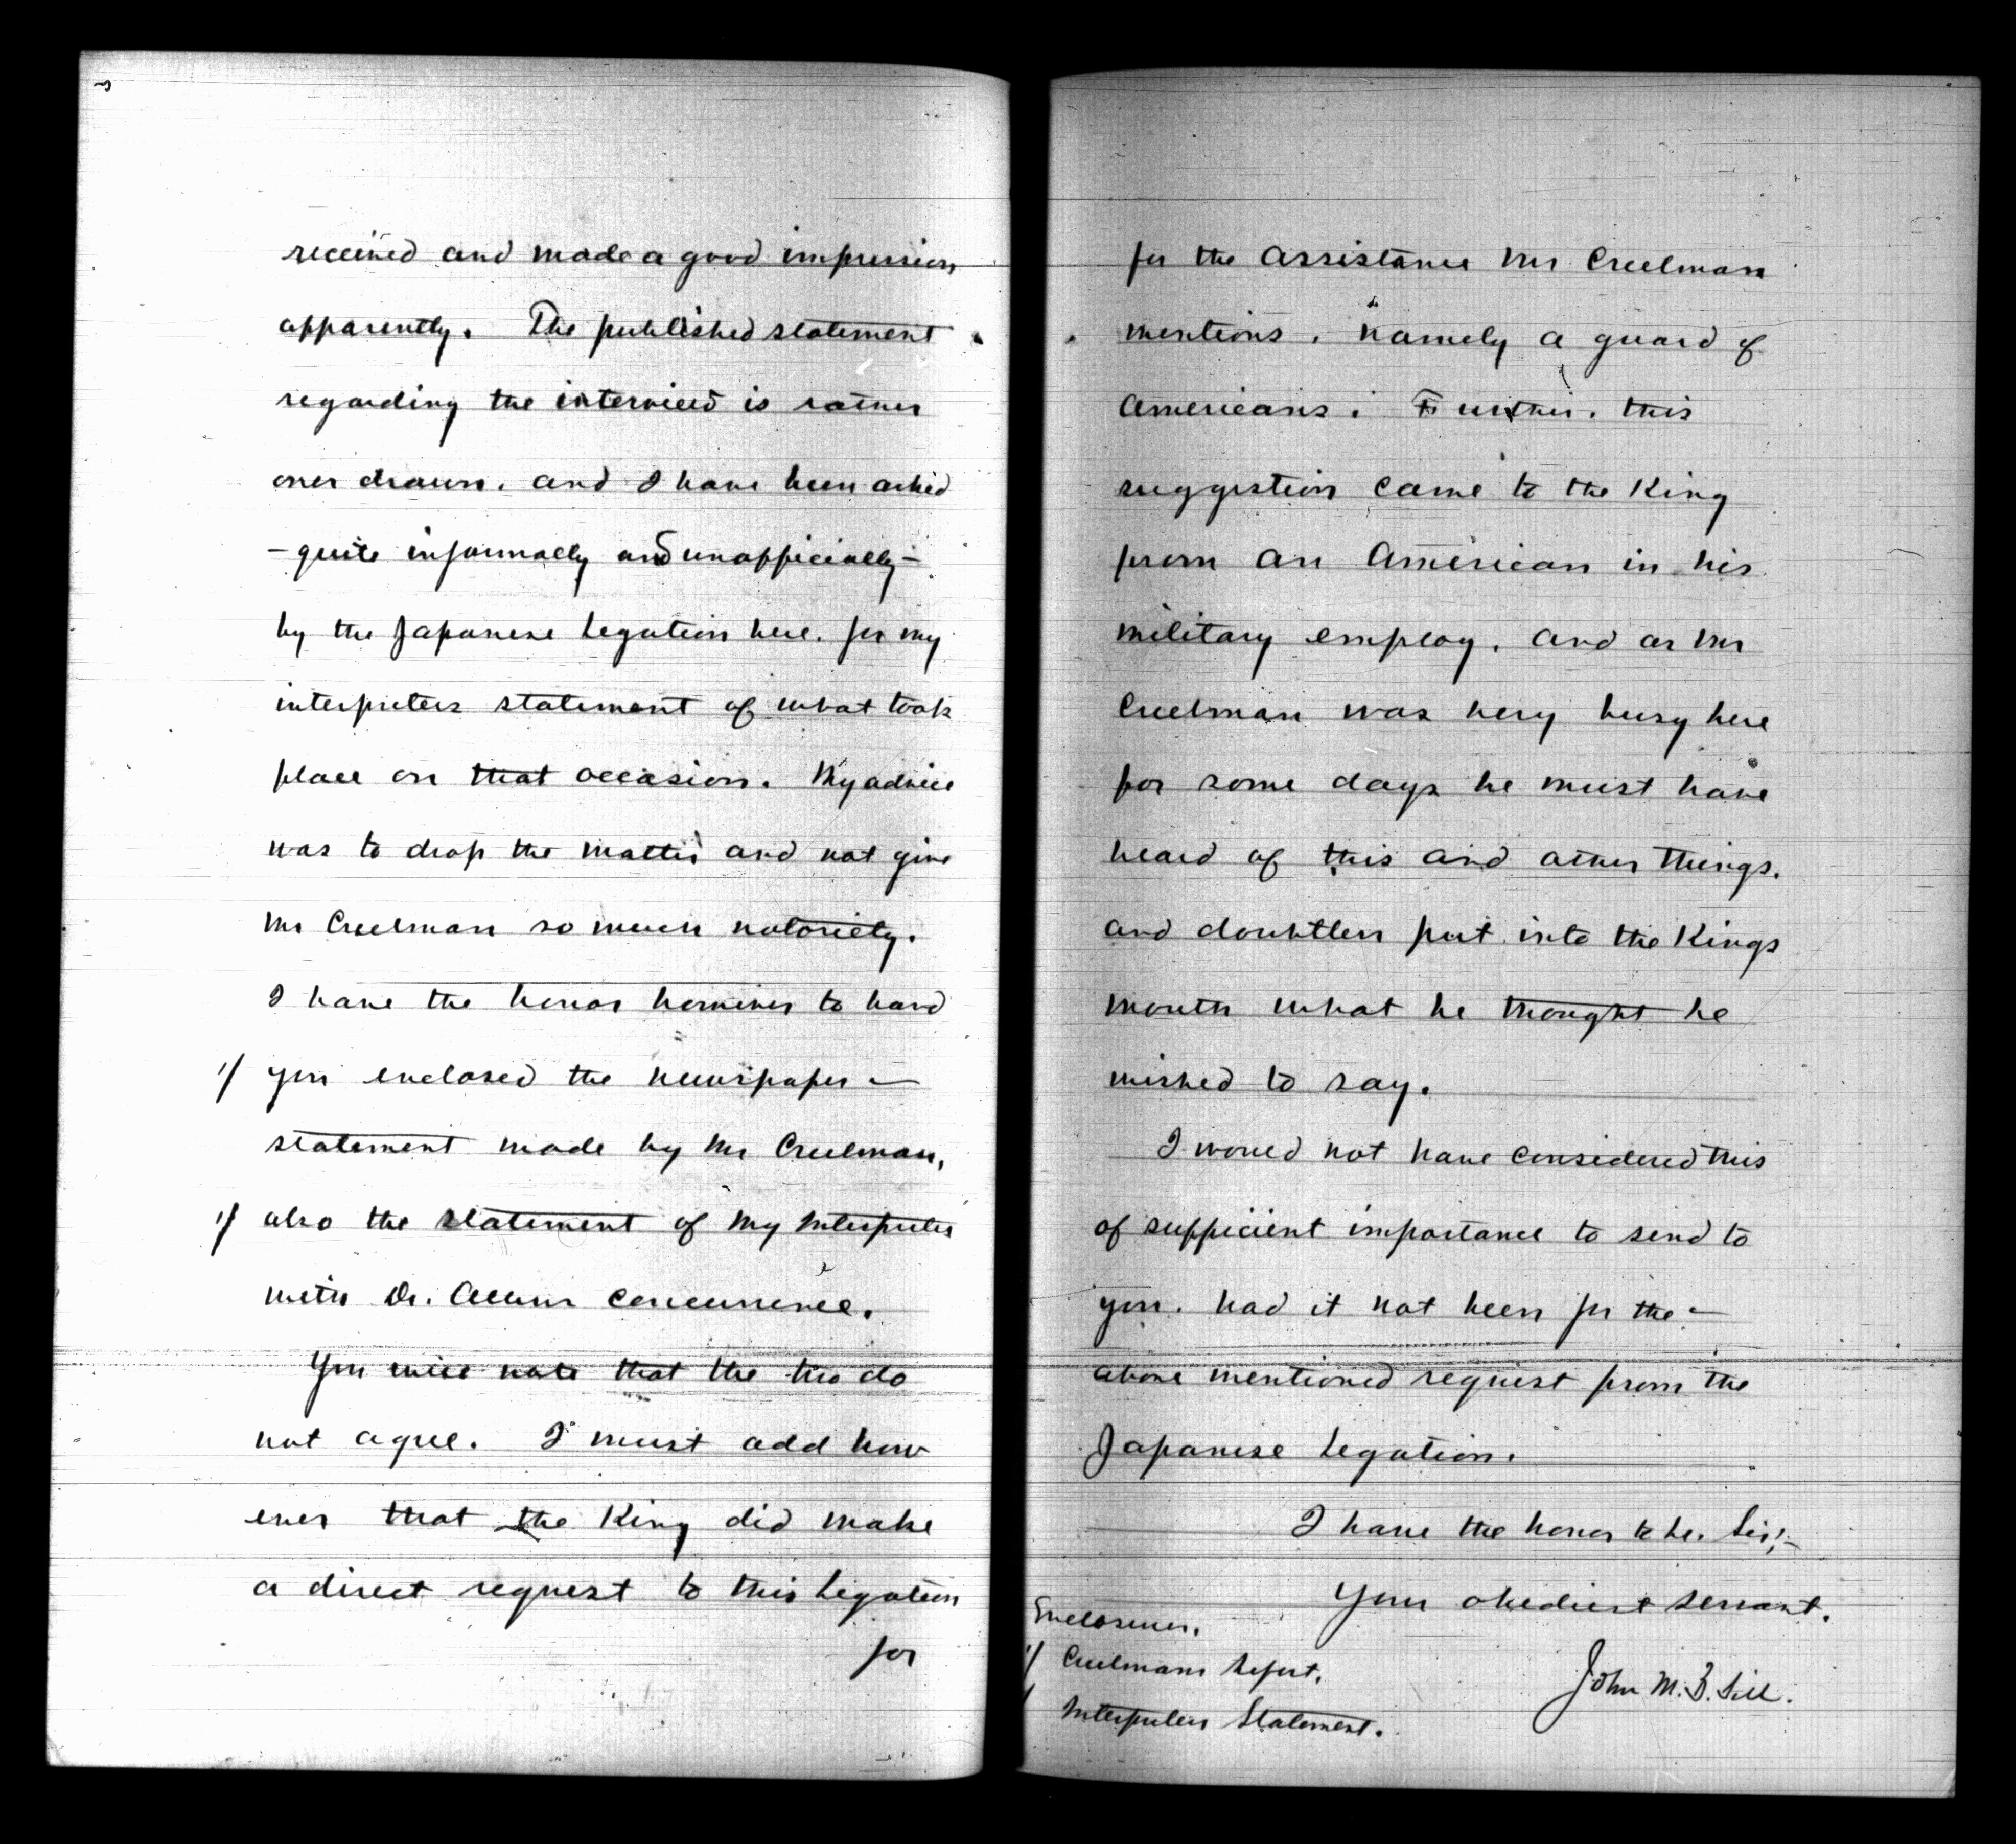 received and made a good impression
apparently. The published statement
regarding the interview is rather
over drawn. and I have been asked
- quite informally and unofficially -
by the Japanese Legation here. for my
interpreters statement of what took
place on that occasion. My advice
was to drop the matter and not give
Mr Creelman so much notoriety.
I have the honor however to hand
1/ you enclosed the newspaper -
statement made by Mr Creelman,
1/ also the statement of my Interpreter
with Dr. Allens concurrence.
You will note that the two do
not agree. I must add how
ever that the King did make
a direct request to this Legation
for
for the assistance Mr Creelman
mentions. namely a guard of
Americans. Further. this
suggestion came to the King
from an American in his
military employ. and as Mr
Creelman was very busy here
for some days he must have
heard of this and other things.
and doubtless put into the Kings
mouth what he thought he
wished to say.
I would not have considered this
of sufficient importance to send to
you. had it not been for the -
above mentioned request from the
Japanese Legation.
I have the honor to be. Sir;-
Your obedient servant.
John M. B. Sill.
Enclosures.
1/ Creelmans Report.
/ Interpreters Statement.